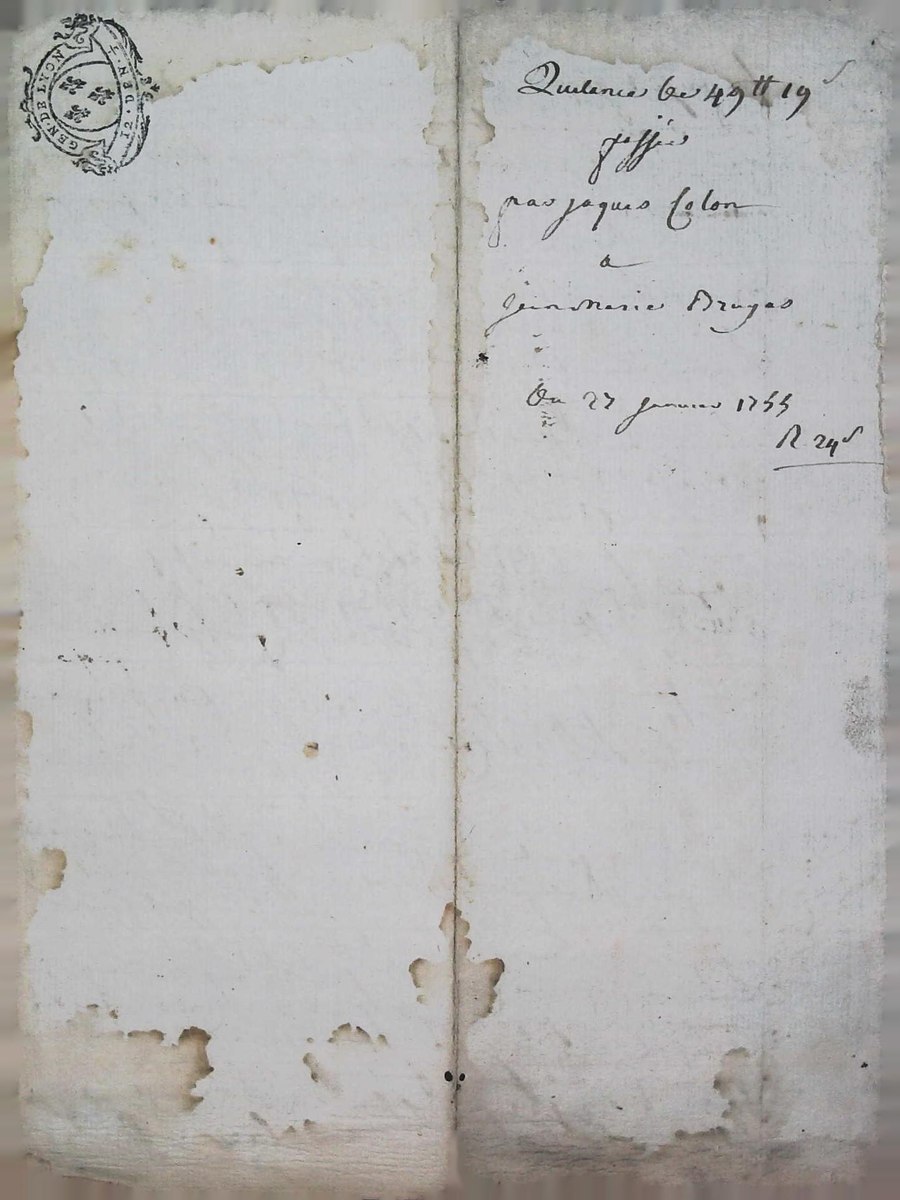 GEN · DE LYON
NOT
12 · DEN · T
Quitance de 49tt 19s
passée
par jaques Colon
a
jean marie Brugas
Du 27 janvier 1755
R 24s